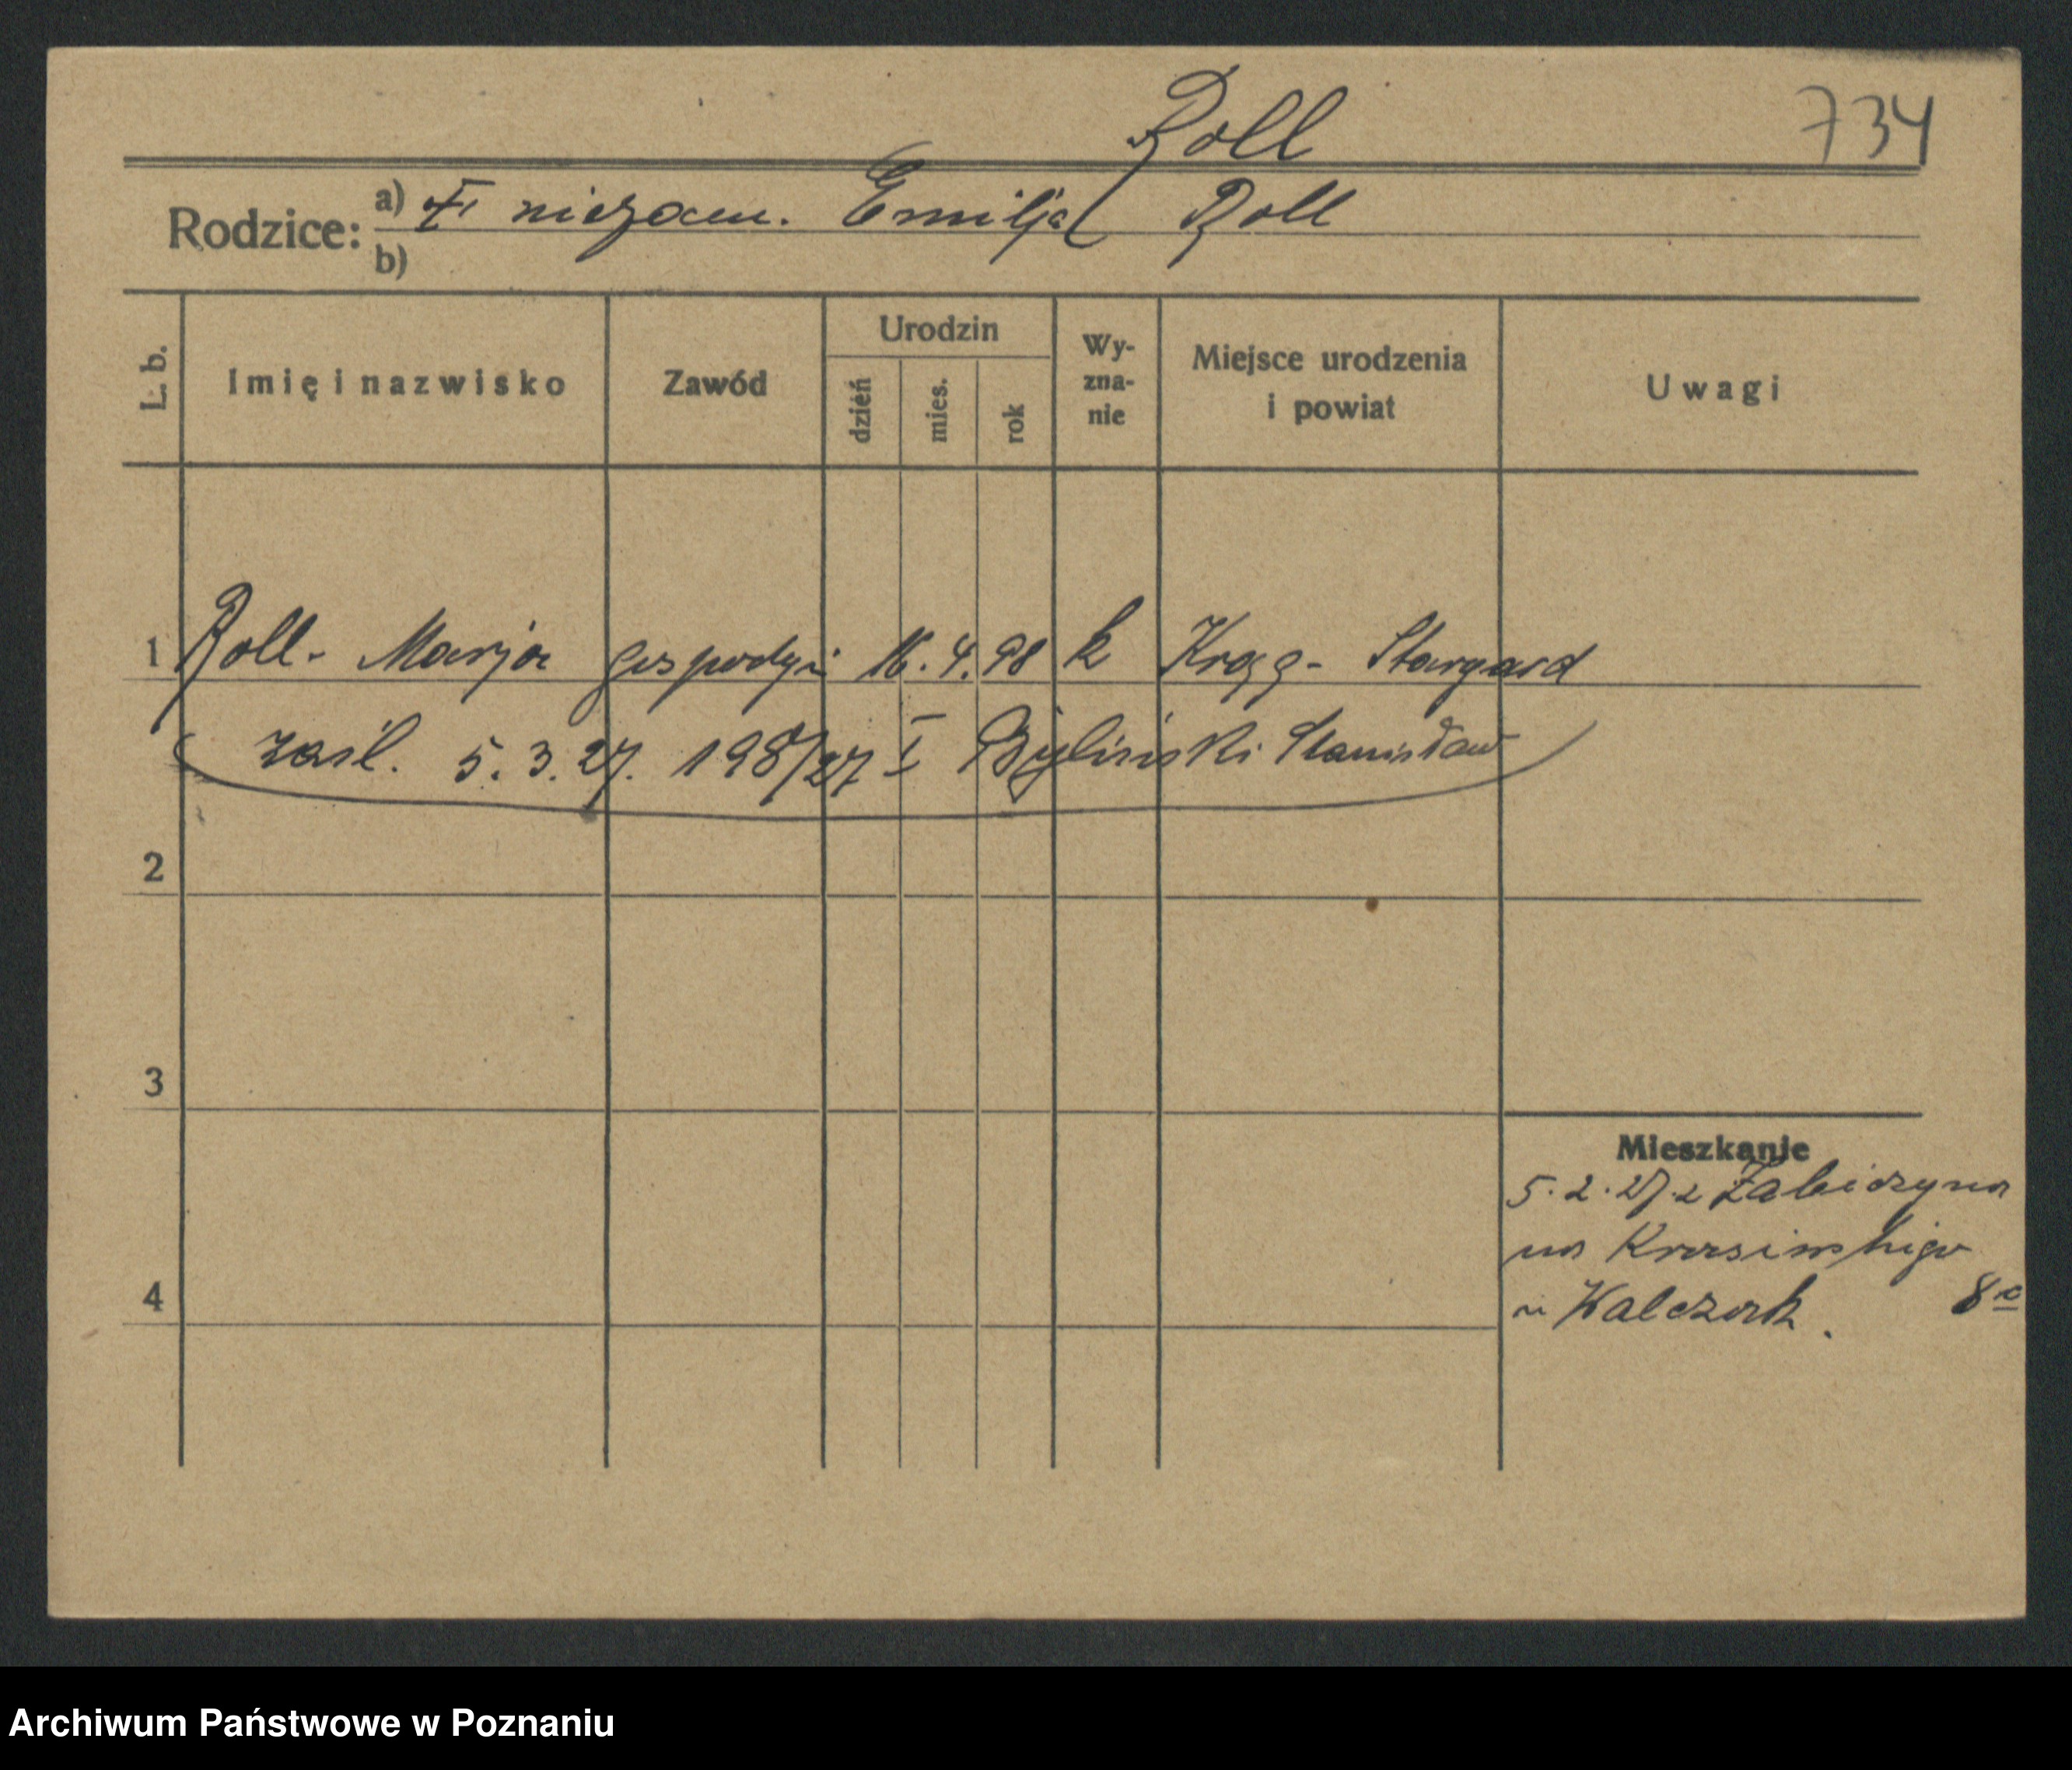 Roll
734
Rodzice: a) niezam. Emilja Roll
b)
L. b.
Imię i nazwisko
Zawód
Urodzin
dzień
mies.
rok
Wy-
zna-
nie
Miejsce urodzenia
i powiat
Uwagi
1 Roll Marja gospodyni 16. 4. 98 k Krąg - Stargard
zaśl. 5. 3. 27. 198/27 I Byliński Stanisław
2
3
4
Mieszkanie
5. 2. 27. z Żabiczyna
na Krasińskiego
u Walczak. 8
Archiwum Państwowe w Poznaniu